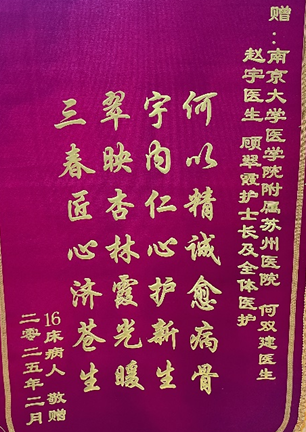 赠：南京大学医学院附属苏州医院 何双建医生
赵宇医生 顾翠霞护士长及全体医护
何以精诚愈病骨
宇内仁心护新生
翠映杏林霞光暖
三春匠心济苍生
16床病人 敬赠
二零二五年二月